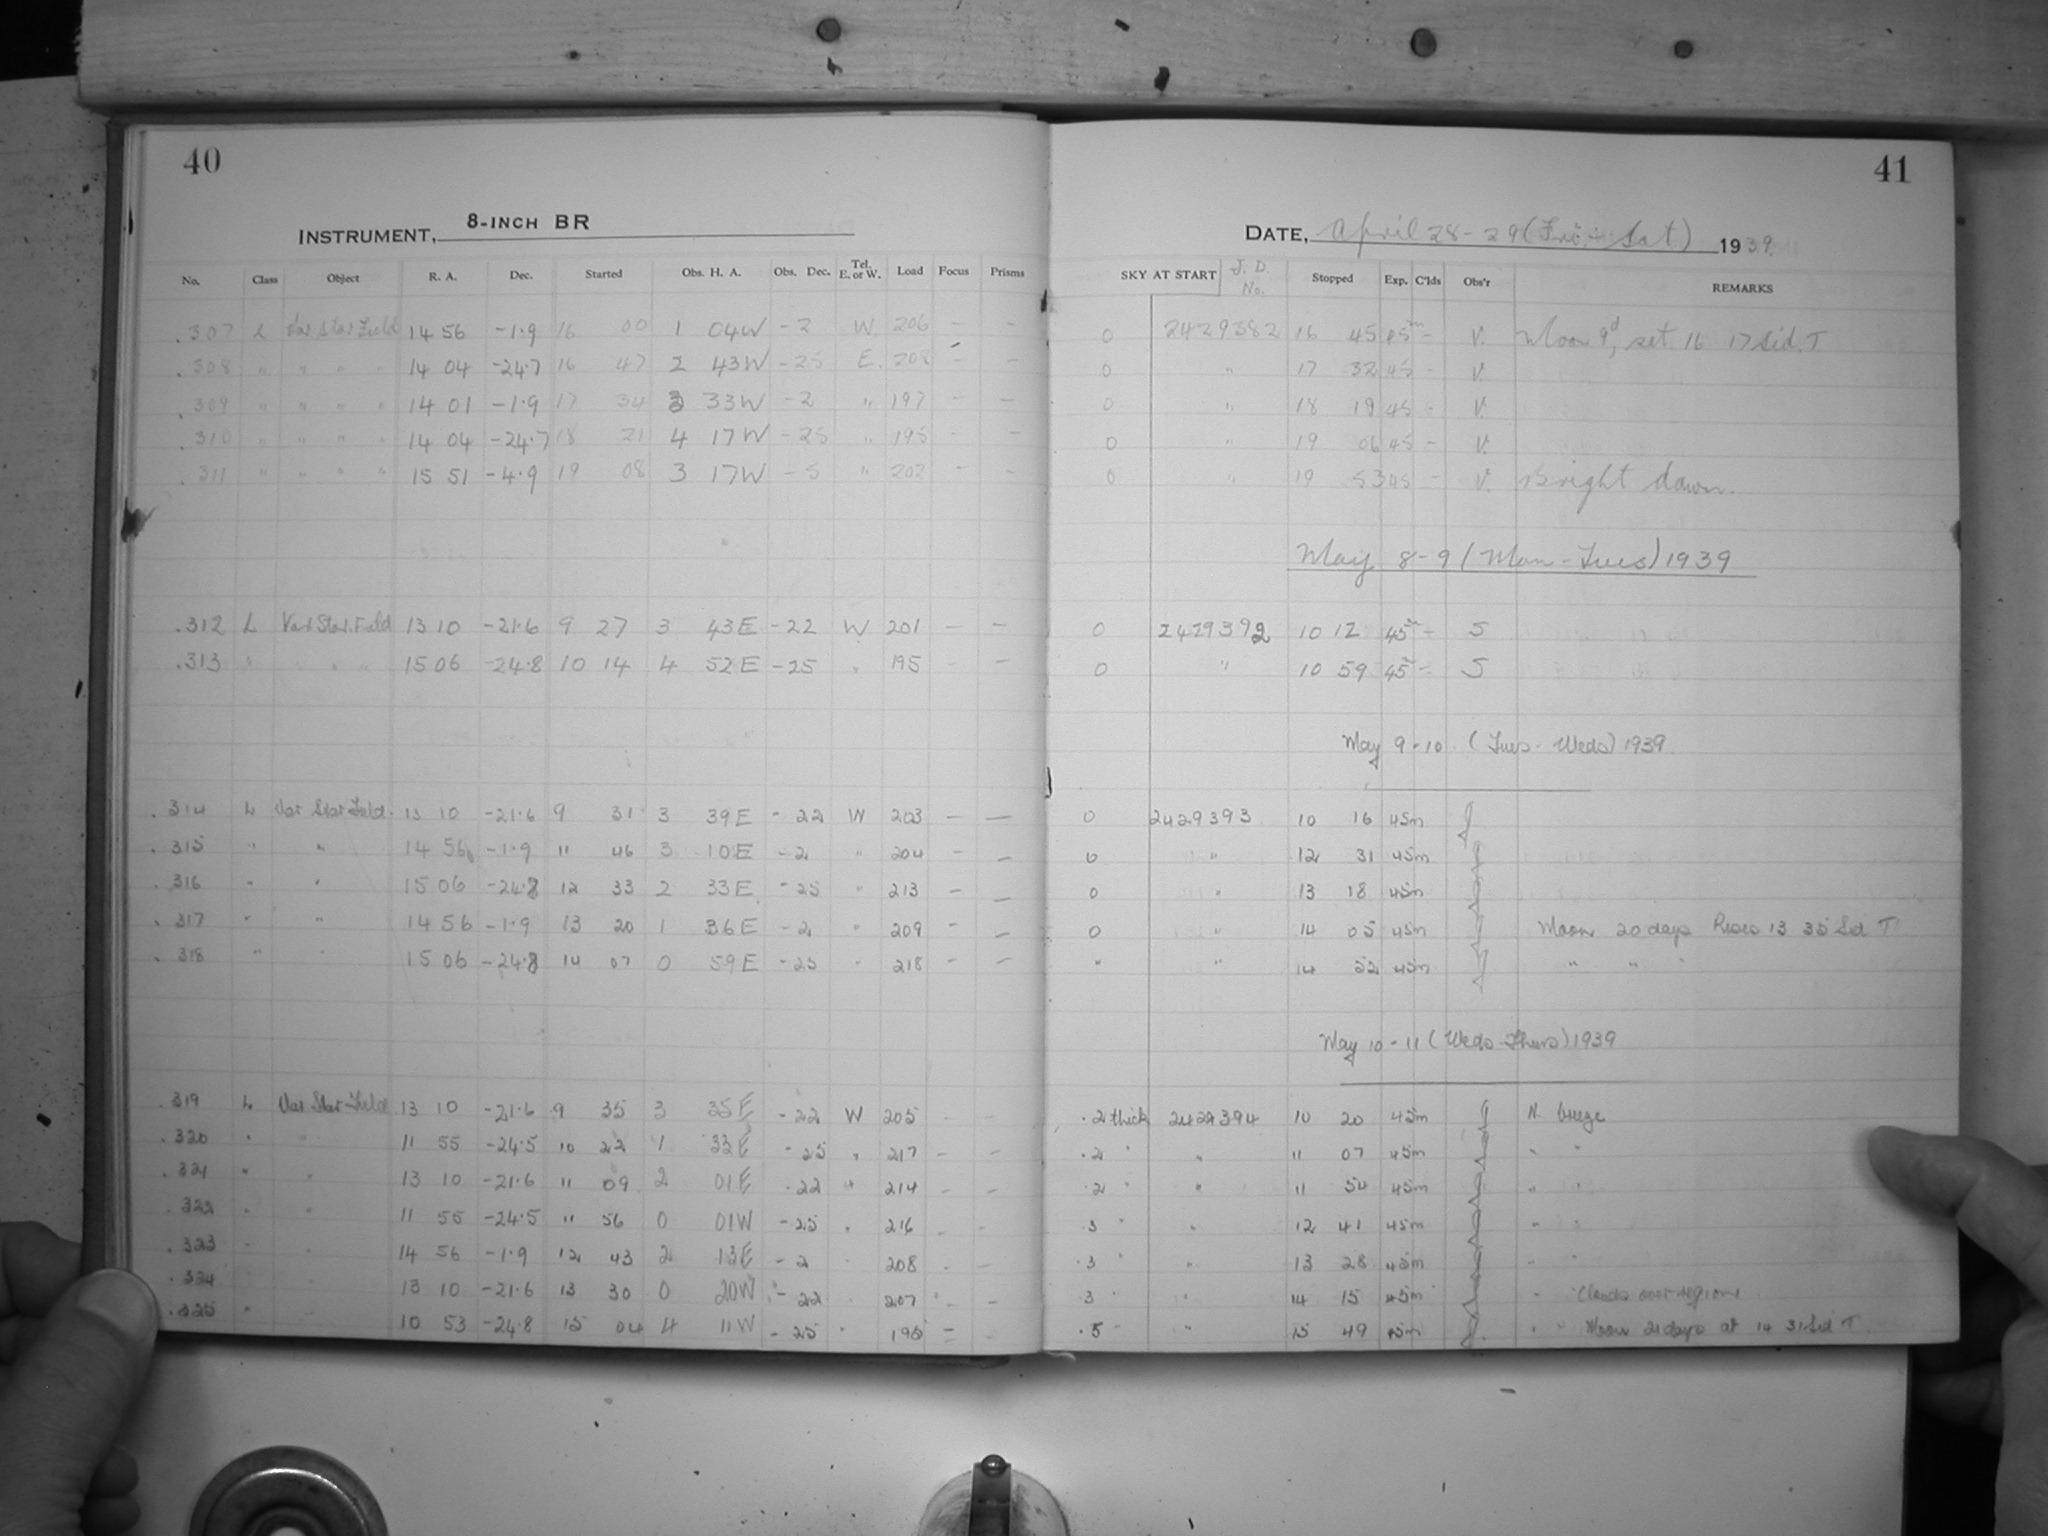 40
INSTRUMENT, 8-INCH BR
No. Class Object R. A. Dec. Started Obs. H. A. Obs. Dec. Tel. E. or W. Load Focus Prisms
.307 L Var Star Field 14 56 -1.9 16 00 1 04W -2 W. 206 - -
.308 " " " " 14 04 -24.7 16 47 2 43W -25 E. 208 - -
.309 " " " " 14 01 -1.9 17 34 3 33W -2 " 197 - -
.310 " " " " 14 04 -24.7 18 21 4 17W -25 " 195 - -
.311 " " " " 15 51 -4.9 19 08 3 17W -5 " 202 - -
.312 L Var Star Field 13 10 -21.6 9 27 3 43E -22 W 201 - -
.313 " " " " 15 06 -24.8 10 14 4 52E -25 " 195 - -
.314 L Var Star Field. 13 10 -21.6 9 31 3 39E -22 W 203 - -
.315 " " 14 56 -1.9 11 46 3 10E -2 " 204 - -
.316 " " 15 06 -24.8 12 33 2 33E -25 " 213 - -
.317 " " 14 56 -1.9 13 20 1 36E -2 " 209 - -
.318 " " 15 06 -24.8 14 07 0 59E -25 " 218 - -
.319 L Var Star Field 13 10 -21.6 9 35 3 35E -22 W 205 - -
.320 " " 11 55 -24.5 10 22 1 33E -25 " 217 - -
.321 " " 13 10 -21.6 11 09 2 01E -22 " 214 - -
.322 " " 11 55 -24.5 11 56 0 01W -25 " 216 - -
.323 " " 14 56 -1.9 12 43 2 13E -2 " 208 - -
.324 " " 13 10 -21.6 13 30 0 20W -22 " 207 - -
.325 " " 10 53 -24.8 15 04 4 11W -25 " 195 - -
41
DATE, April 28-29 (Fri.-Sat) 1939.
SKY AT START J. D. No. Stopped Exp. C'lds Obs'r REMARKS
0 2429382 16 45 45m - V. Moon 9d, set 16 17 Sid. T
0 " 17 32 45 - V.
0 " 18 19 45 - V.
0 " 19 06 45 - V.
0 " 19 53 45 - V. Bright dawn.
May 8-9 (Mon-Tues) 1939
0 2429392 10 12 45m - S
0 " 10 59 45m - S
May 9-10. (Tues-Weds) 1939
0 2429393 10 16 45m
0 " 12 31 45m
0 " 13 18 45m
0 " 14 05 45m Moon 20 days Rises 13 35 Sid T
" " 14 52 45m " " "
May 10-11 (Weds-Thurs) 1939
.2 thick 2429394 10 20 45m N. breeze
.2 " " 11 07 45m " "
.2 " " 11 54 45m " "
.3 " " 12 41 45m " "
.3 " " 13 28 45m " "
.3 " " 14 15 45m " Clouds over region
.5 " " 15 49 45m " " Moon 21 days at 14 31 Sid T